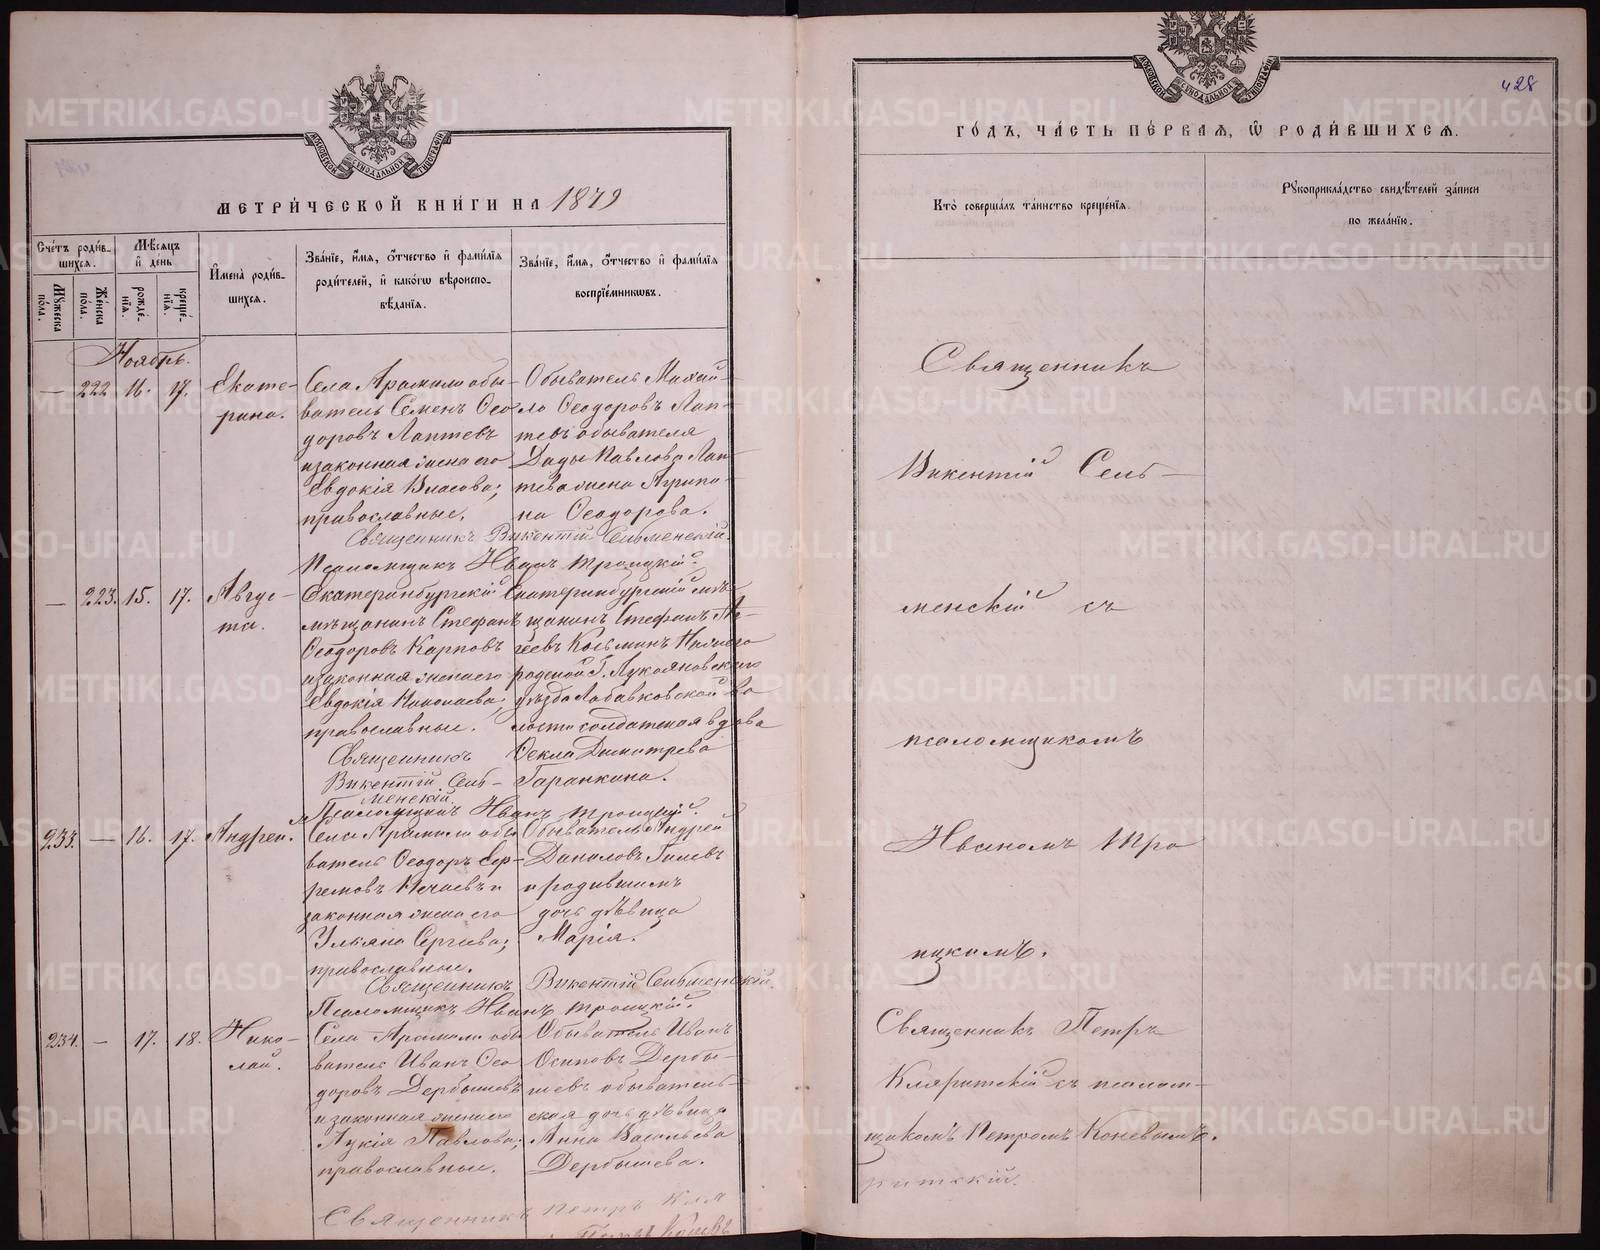 МЕТРИ́ЧЕСКОЙ КНИ́ГИ НА 1879
Счéтъ роди́в-
шихся.
Мѣсяцъ
и день
Мꙋжеска
по́ла.
Же́нска
по́ла.
рожде́-
нїя.
креще́-
нїя.
Имена̀ роди́в-
шихся.
Зва́нїе, и́мя, о́тчество и фами́лїя
роди́телей, и како́гѡ вѣроиспо-
вѣ́данїя.
Зва́нїе, и́мя, о́тчество и фами́лїя
воспрїе́мникѡвъ.
Ноябрь.
— 222 16. 17. Екате-
рина.
Села Арамили обы-
ватель Семенъ Ѳео-
доровъ Лаптевъ
и законная жена его
Евдокія Власова;
православные.
Обыватель Михай-
ло Ѳеодоровъ Лап-
тевъ обывателя
Павлова Лап-
тева жена Агрипи-
на Ѳеодорова.
Священникъ Викентій Сельменскій.
Псаломщикъ Иванъ Троицкій.
— 223. 15. 17. Авгус-
та.
Екатеринбургскій
мѣщанинъ Стефанъ
Ѳеодоровъ Карповъ
и законная жена его
Евдокія Николаева;
православные.
Екатеринбургскій мѣ-
щанинъ Стефанъ Ма-
Козьминъ Нижего
родской Г. Лукояновскаго
уѣзда Лобавковской во
лости солдатская вдова
Ѳекла Димитрева
Гаранкина.
Священникъ
Викентій Сель-
менскій.
Псаломщикъ Иванъ Троицкій.
233. — 16. 17. Андрей.
Села Арамили обы
ватель Ѳеодоръ Сер-
Нечаевъ и
законная жена его
Ульяна Сергіева;
православные.
Обыватель Андрей
Даниловъ Гилевъ
и родившимъ
дочь дѣвица
Марія.
Священникъ Викентій Сельменскій.
Псаломщикъ Иванъ Троицкій.
234. — 17. 18. Нико-
лай.
Села Арамили обы
ватель Иванъ Ѳео
доровъ Дербышевъ
и законная жена его
Лукія Павлова;
православные.
Обыватель Иванъ
Осиповъ Дербы-
шевъ обыватель-
ская дочь дѣвица
Анна Васильева
Дербышева.
Священникъ Петръ Кля
Петръ Коневъ
428
ГО́ДЪ, ЧА́СТЬ ПЕ́РВАЯ, Ѡ РОДИ́ВШИХСЯ.
Кто̀ соверша́лъ та́инство креще́нїя.
Рꙋкоприкла́дство свидѣ́телей за́писи
по жела́нїю.
Священникъ
Викентій Сель-
менскій съ
псаломщикомъ
Иваномъ Тро
ицкимъ.
Священникъ Петръ
Кляритскій съ псалом-
щикомъ Петромъ Коневымъ.
ритскій.